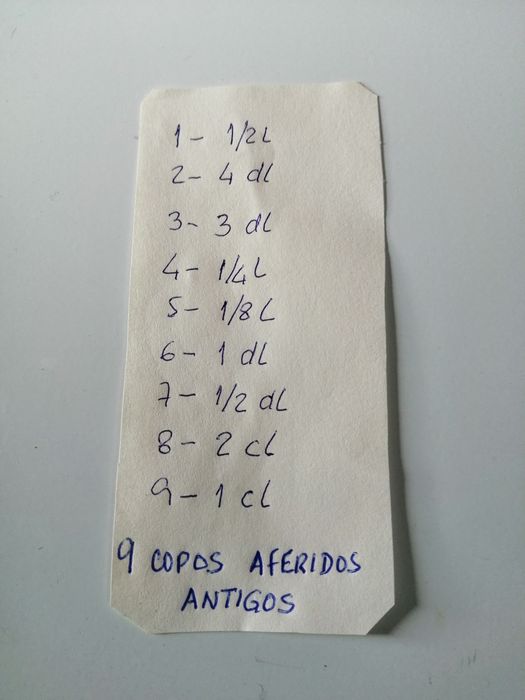 1- 1/2L
2- 4 dL
3- 3 dL
4- 1/4L
5- 1/8L
6- 1 dL
7- 1/2 dL
8- 2 cL
9- 1 cL
9 COPOS AFERIDOS
ANTIGOS